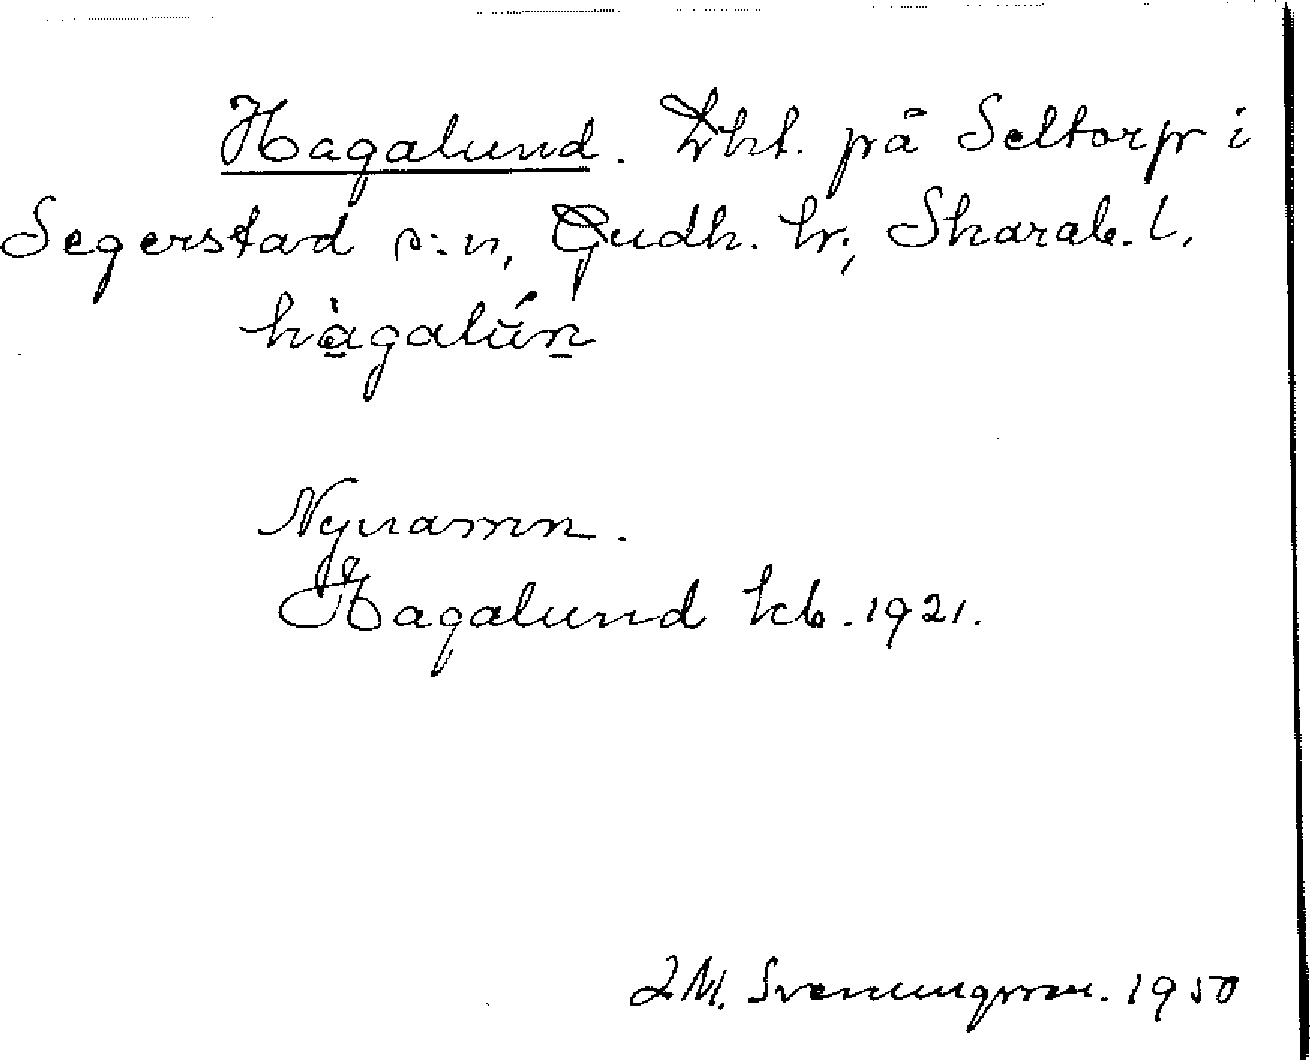 Hagalund. Lht. på Seltorp i
Segerstad s:n, Gudh. hr, Skarab. l.
hàgalún
Nynamn.
Hagalund kb. 1921.
I M. Svenungsson. 1950